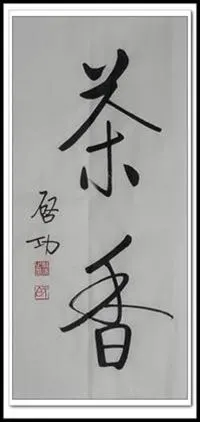 茶香
启功